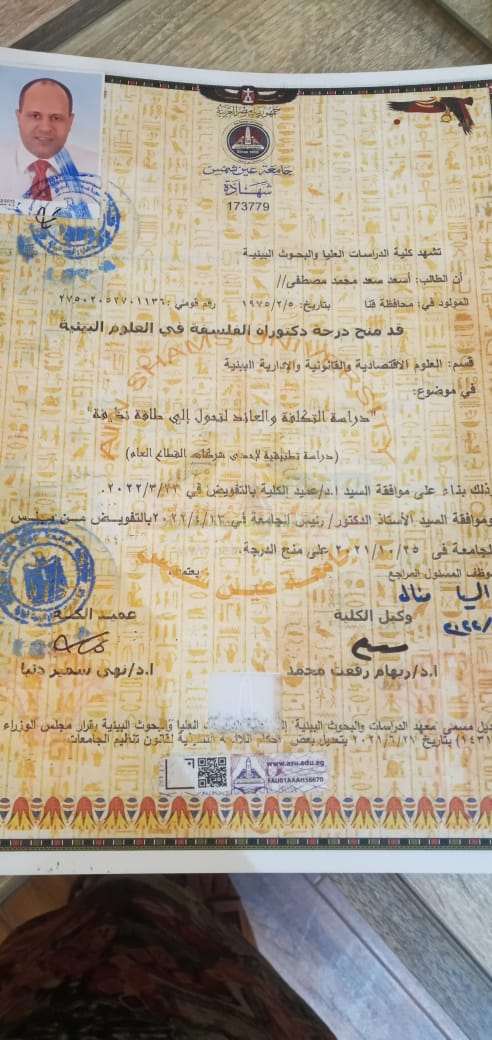 جمهورية مصر العربية
جامعة عين شمس
شهادة
173779
تشهد كلية الدراسات العليا والبحوث البيئية
أن الطالب: أسعد سعد محمد مصطفى//
المولود في: محافظة قنا بتاريخ: ١٩٧٥/٢/٥ رقم قومي: ٢٧٥٠٢٠٥٢٧٠١١٣٦
قد منح درجة دكتوراه الفلسفة في العلوم البيئية
قسم: العلوم الاقتصادية والقانونية والإدارية البيئية
في موضوع:
"دراسة التكلفة والعائد لتحول إلى طاقة نظيفة"
(دراسة تطبيقية لإحدى شركات القطاع العام)
AIN SHAMS UNIVERSITY
ذلك بناء على موافقة السيد ا.د/عميد الكلية بالتفويض في ٢٠٢٢/٣/٢٣.
وموافقة السيد الأستاذ الدكتور/ رئيس الجامعة في ٢٠٢٢/٤/١٣ بالتفويض من مجلس
لجامعة في ٢٠٢١/١٠/٢٥ على منح الدرجة.
جامعة عين شمس
يعتمد،
موظف المسئول المراجع
وكيل الكلية
عميد الكلية
ا.د/ريهام رفعت محمد
ا.د/نهى سمير دنيا
مسمى معهد الدراسات والبحوث البيئية العليا والبحوث البيئية بقرار مجلس الوزراء
بتاريخ ٢٠٢١/٦/٢١ بتعديل بعض أحكام اللائحة التنفيذية لقانون تنظيم الجامعات
www.asu.edu.eg